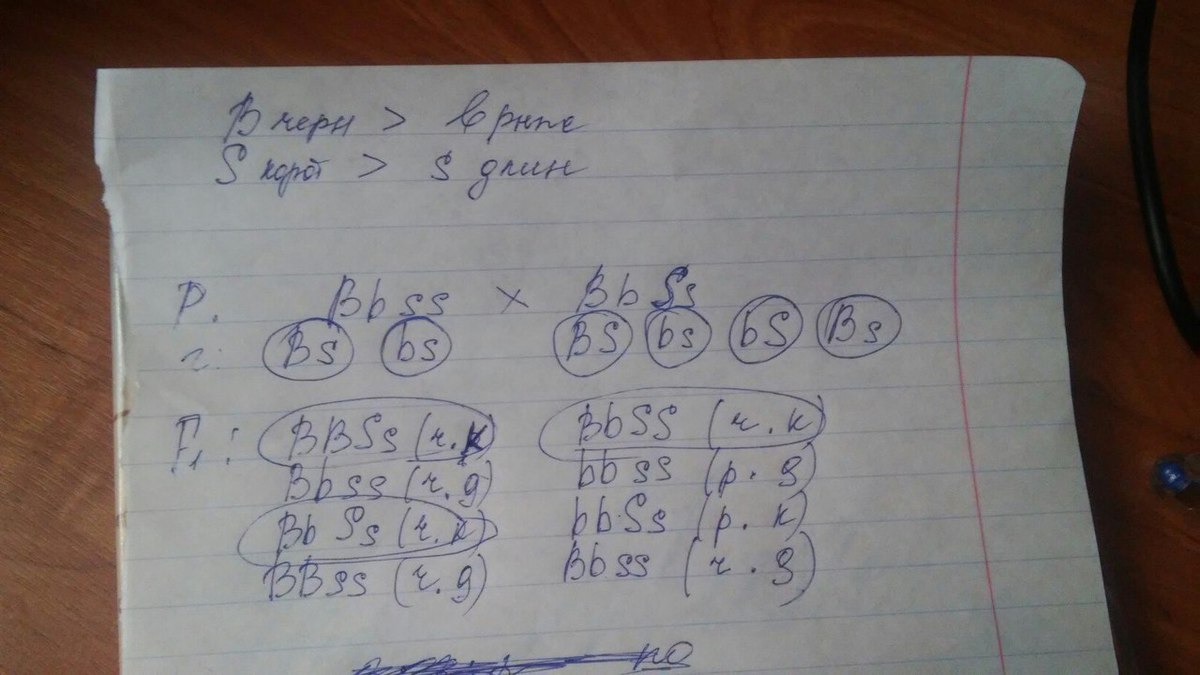 B черн > b рыже
S корот > s длин
P. Bbss × BbSs
г: Bs bs BS bs bS Bs
F₁: BBSs (ч.к) BbSs (ч.к)
Bbss (ч.д) bbss (р.д)
BbSs (ч.к) bbSs (р.к)
BBss (ч.д) Bbss (ч.д)
по